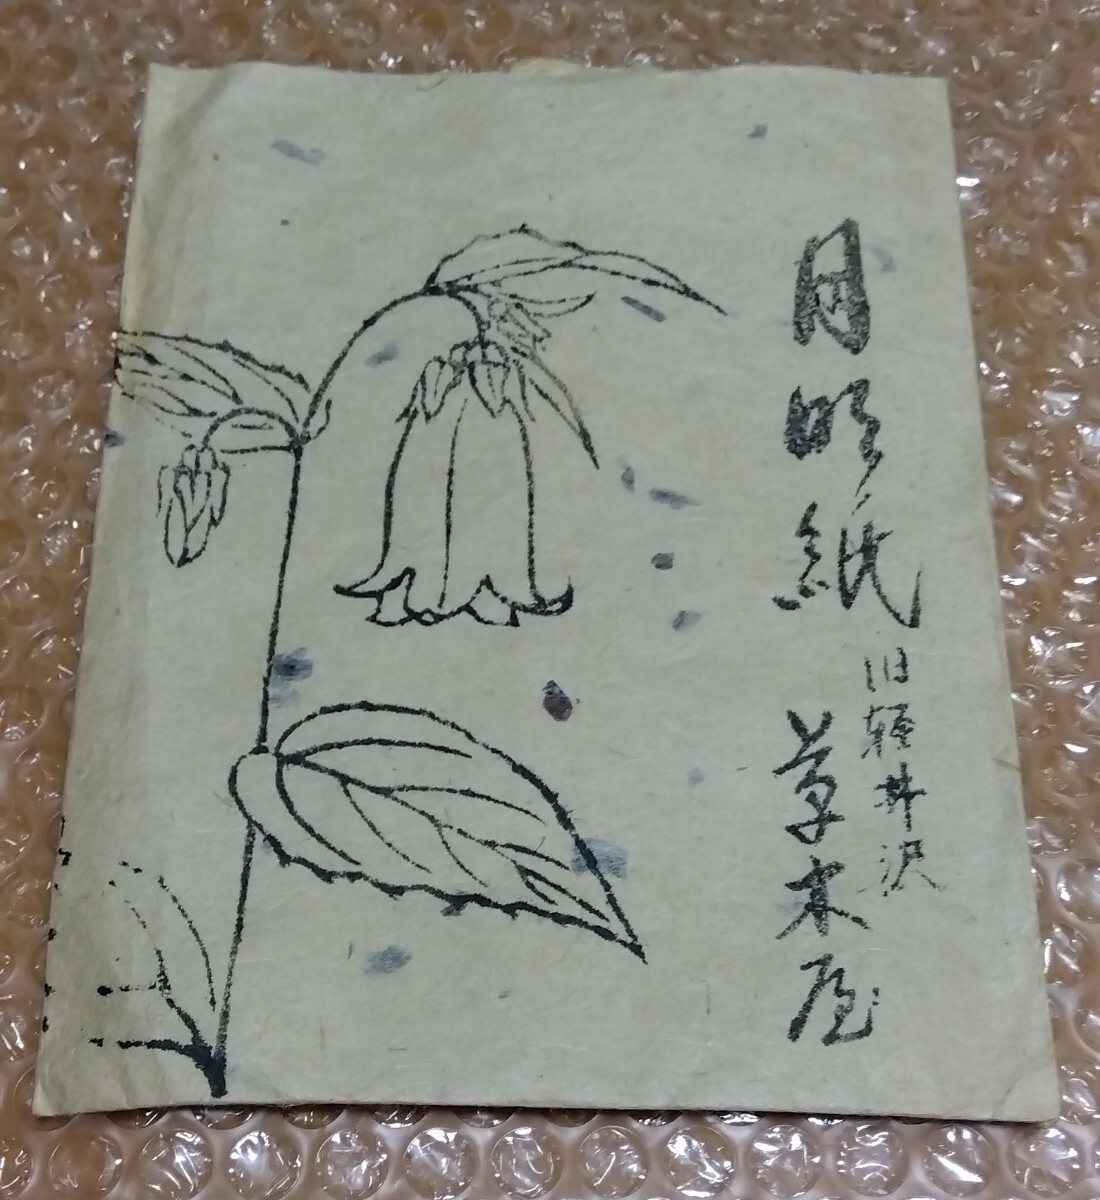 月明紙
旧軽井沢
草木屋